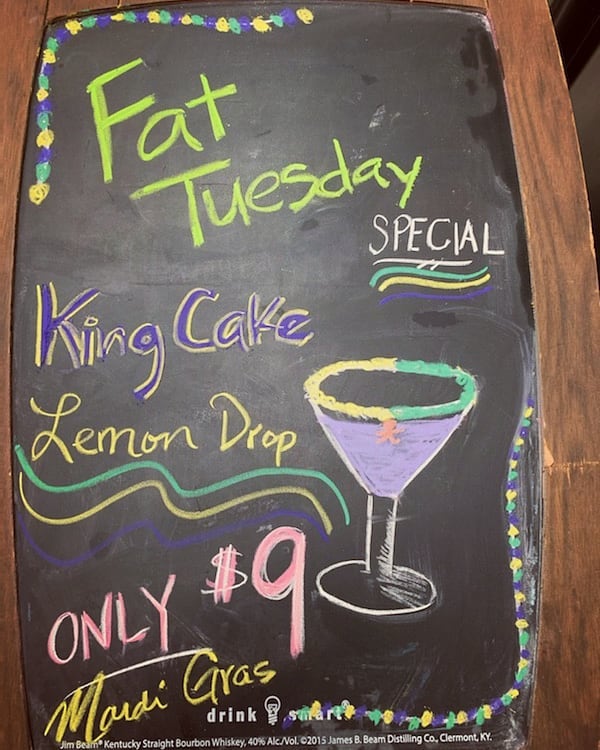 Fat
Tuesday
SPECIAL
King Cake
Lemon Drop
ONLY $9
Mardi Gras
drink smart®
Jim Beam® Kentucky Straight Bourbon Whiskey, 40% Alc./Vol. ©2015 James B. Beam Distilling Co., Clermont, KY.